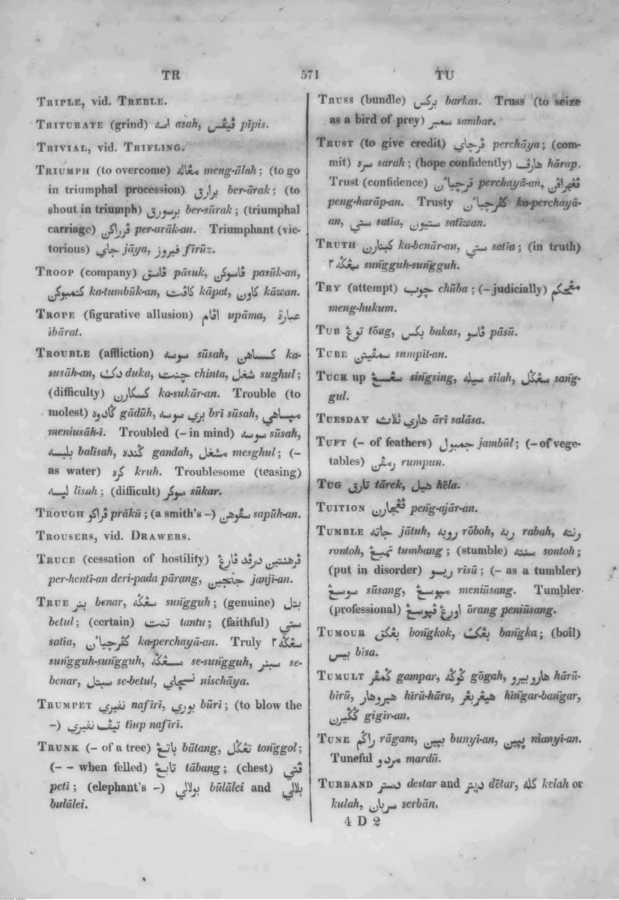 TR
571
TU
TRIPLE, vid. TREBLE.
TRITURATE (grind) اسه asah, ڤيڤس pīpis.
TRIVIAL, vid. TRIFLING.
TRIUMPH (to overcome) مڠاله meng-ālah; (to go
in triumphal procession) برارق ber-ārak; (to
shout in triumph) برسورق ber-sūrak; (triumphal
carriage) ڤرراكن per-arāk-an. Triumphant (vic-
torious) جاي jāya, فيروز fīrūz.
TROOP (company) ڤاسق pāsuk, ڤاسوكن pasūk-an,
كتمبوكن ka-tumbūk-an, كافت kāpat, كاون kāwan.
TROPE (figurative allusion) اڤام upāma, عبارة
ibārat.
TROUBLE (affliction) سوسه sūsah, كسساهن ka-
susāh-an, دك duka, چنت chinta, شغل sughul;
(difficulty) كسكارن ka-sukār-an. Trouble (to
molest) گادوه gādūh, بري سوسه brī sūsah,
meniusāh-ī. Troubled (- in mind) سوسه sūsah,
بليسه balīsah, گنده gandah, مشغل mesghul; (-
as water) كره kruh. Troublesome (teasing)
ليسه lisah; (difficult) سوكر sūkar.
TROUGH ڤراكو prākū; (a smith's -) سڤوهن sapūh-an.
TROUSERS, vid. DRAWERS.
TRUCE (cessation of hostility) ڤرهنتين درڤد ڤارڠ
per-henti-an deri-pada pārang, جنجين janji-an.
TRUE بنر benar, سڠڬه sungguh; (genuine) بتل
betul; (certain) تنت tantu; (faithful) ستي
satia, كڤرچيان ka-perchayā-an. Truly سڠڬه٢
sungguh-sungguh, سسڠڬه se-sungguh, سبنر se-
benar, سبتل se-betul, نسچاي nischāya.
TRUMPET نفيري nafīrī, بوري būrī; (to blow the
-) تيڤ نفيري tīup nafīrī.
TRUNK (- of a tree) باتڠ bātang, تڠڬل tonggol;
(- - when felled) تابڠ tābang; (chest) ڤتي
peti; (elephant's -) بولالي būlālei and بلالي
bulālei.
TRUSS (bundle) بركس barkas. Truss (to seize
as a bird of prey) سمبر sambar.
TRUST (to give credit) ڤرچاي perchāya; (com-
mit) سره sarah; (hope confidently) هارڤ hārap.
Trust (confidence) ڤرچيان perchayā-an, ڤڠهراڤن
peng-harāp-an. Trusty كڤرچيان ka-perchayā-
an, ستي satia, ستيون satiwan.
TRUTH كبنارن ka-benār-an, ستي satia; (in truth)
سڠڬه٢ sungguh-sungguh.
TRY (attempt) چوب chūba; (- judicially) مڠحكم
meng-hukum.
TUB توڠ tōng, بكس bakas, ڤاسو pāsū.
TUBE سمڤيتن sumpit-an.
TUCK up سڠسڠ singsing, سيله silah, سڠڬل sang-
gul.
TUESDAY هاري ثلاث āri salāsa.
TUFT (- of feathers) جمبول jambūl; (- of vege-
tables) رمڤن rumpun.
TUG تارق tārek, هيل hēla.
TUITION ڤڠجارن peng-ajār-an.
TUMBLE جاته jātuh, روبه rōboh, ربه rabah, رنته
rontoh, تمبڠ tumbang; (stumble) سنته sontoh;
(put in disorder) ريسو risū; (- as a tumbler)
سوسڠ sūsang, ميوسڠ meniūsang. Tumbler
(professional) اورڠ ڤيوسڠ ōrang peniūsang.
TUMOUR بڠكق bongkok, بڠك bangka; (boil)
بيس bīsa.
TUMULT گمڤر gampar, گوگه gōgah, هاروبيرو hārū-
birū, هيروهار hirū-hāra, هيڠربڠر hingar-bangar,
گڬيرن gigir-an.
TUNE راگم rāgam, بڽين bunyī-an, ڽاڽين nianyi-an.
Tuneful مردو mardū.
TURBAND دستر destar and ديتر dētar, كله kelah or
kulah, سربان serbān.
4 D 2